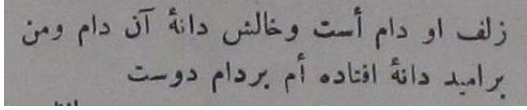 زلف او دام أست وخالش دانهٔ آن دام ومن
برامید دانهٔ افتاده أم بردام دوست